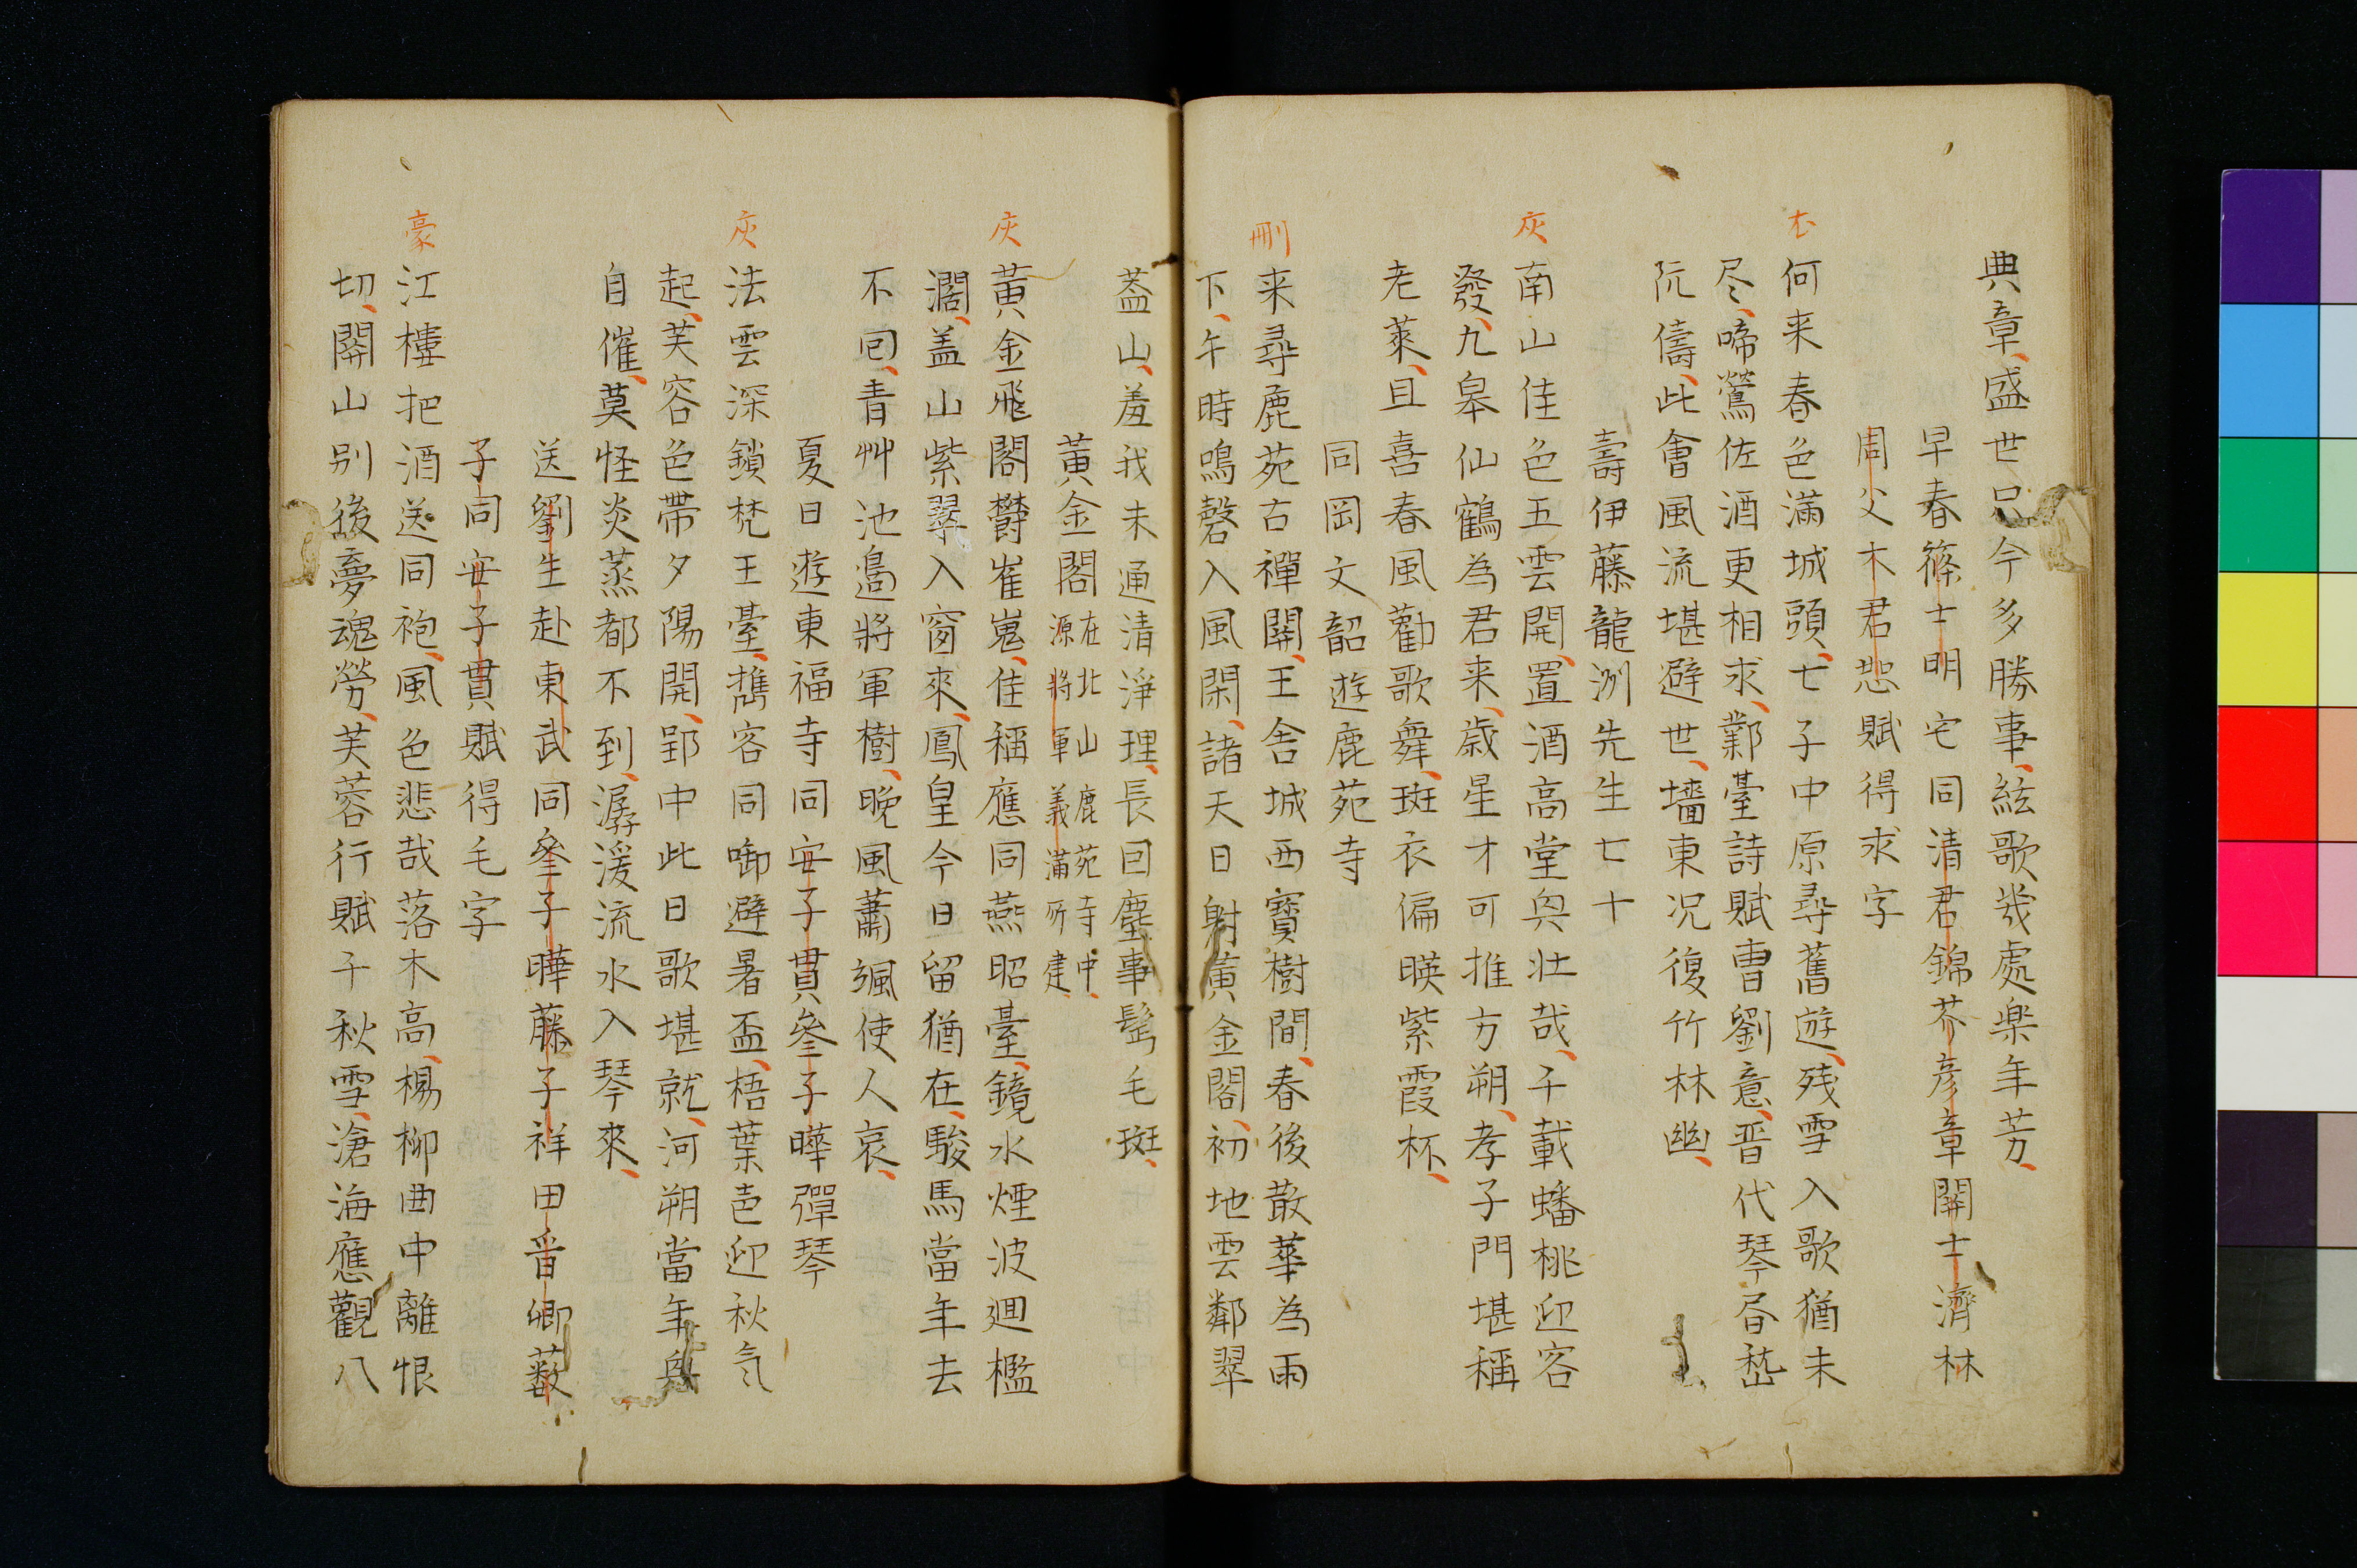 典章盛世只今多勝事絃歌幾處楽年芳
早春篠士明宅同清君錦芥彦章関士濟林
周父木君恕賦得求字
何来春色滿城頭七子中原尋舊遊残雪入歌猶未
尽啼鶯佐酒更相求鄴臺詩賦曹劉意晋代琴尊嵆
阮儔此會風流堪避世墻東况復竹林幽
壽伊藤龍洲先生七十
灰
南山佳色五雲開置酒高堂奥壮哉千載蟠桃迎客
發九皋仙鶴為君来歳星才可推方朔孝子門堪稱
老萊且喜春風勸歌舞斑衣偏暎紫霞杯
同岡文韶遊鹿苑寺
刪
来尋鹿苑古禪關王舎城西寳樹間春後散華為雨
下午時鳴磬入風閑諸天日射黄金閣初地雲鄰翠
葢山羞我未通清淨理長囙塵事髩毛斑
黄金閣 在北山鹿苑寺中
源將軍義蒲所建
灰
黄金飛閣欝崔嵬佳稱應同燕昭臺鏡水煙波廻檻
濶盖山紫翠入窗來鳳皇今日留猶在駿馬當年去
不囘青艸池邉將軍樹晚風蕭颯使人哀
夏日遊東福寺同安子貫㕘子曄彈琴
灰
法雲深鎖梵王臺携客同啣避暑盃梧葉色迎秋気
起芙容色帶夕陽開郢中此日歌堪就河朔當年興
自催莫怪炎蒸都不到潺湲流水入琴來
送劉生赴東武同㕘子曄藤子祥田晋卿薮
子同安子貫賦得毛字
豪
江樓把酒送同袍風色悲哉落木高楊柳曲中離恨
切關山别後夢魂勞芙蓉行賦千秋雪滄海應觀八